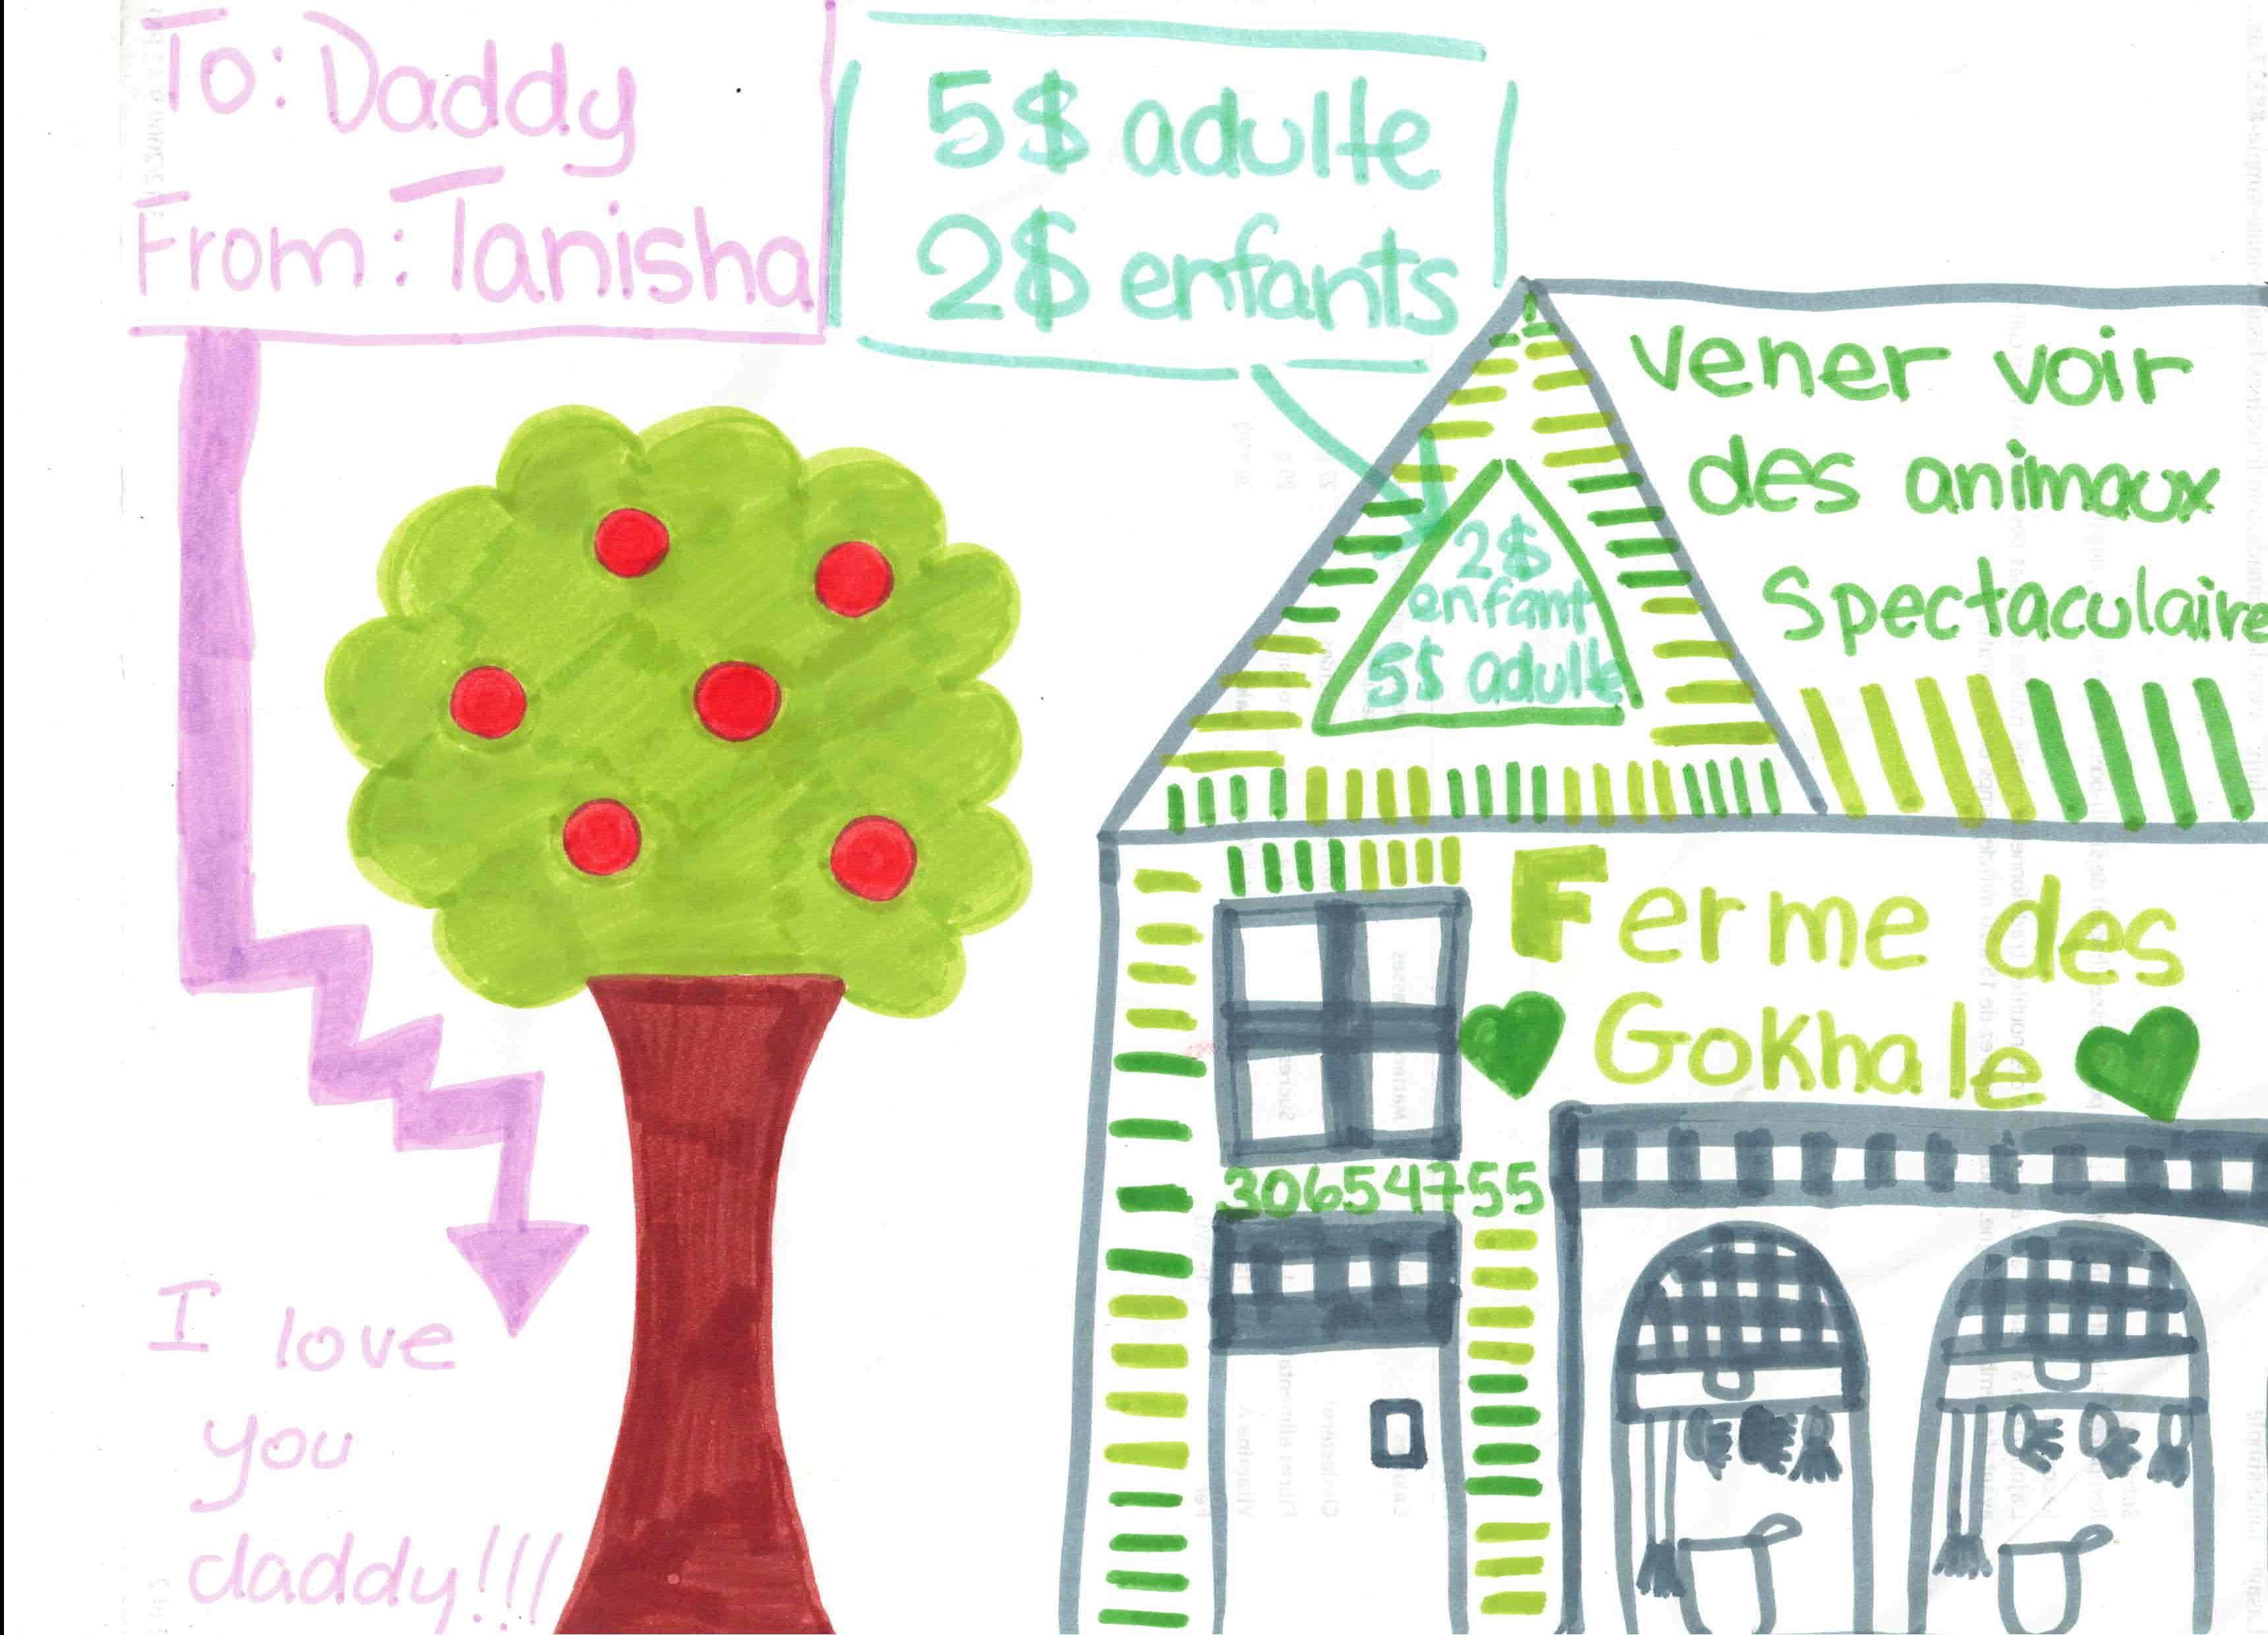 To: Daddy
From: Tanisha
5$ adulte
2$ enfants
vener voir
des animaux
Spectaculaire
2$
enfant
5$ adulte
Ferme des
Gokhale
30654755
I love
you
daddy!!!